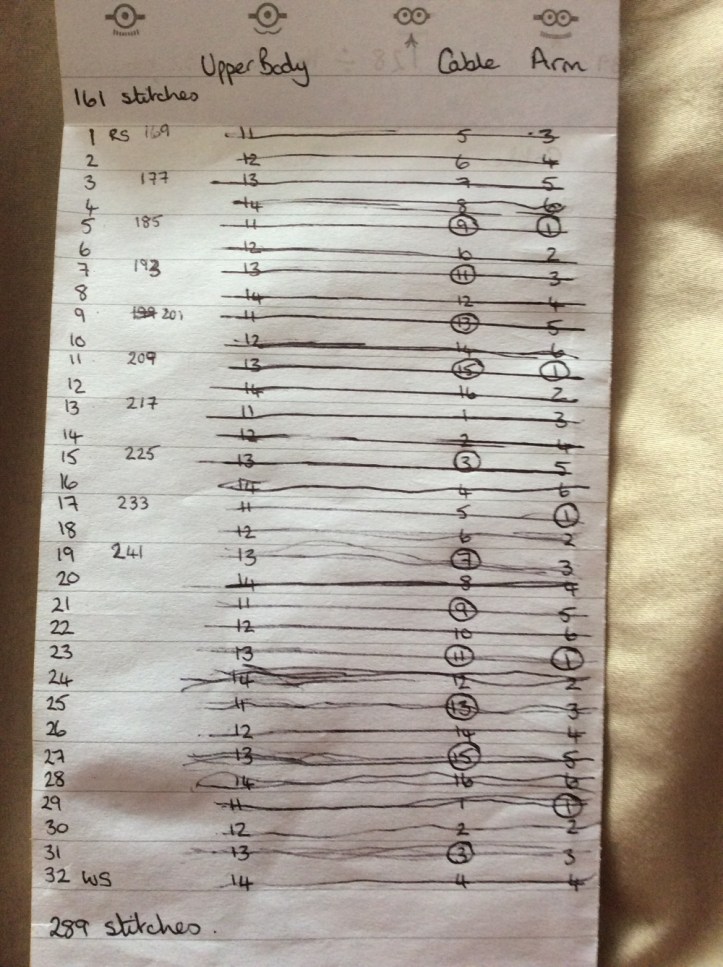 Upper Body Cable Arm
161 stitches
1 RS 169 11 5 3
2 12 6 4
3 177 13 7 5
4 14 8 6
5 185 11 9 1
6 12 10 2
7 193 13 11 3
8 14 12 4
9 199 201 11 13 5
10 12 14 6
11 209 13 15 1
12 14 16 2
13 217 11 1 3
14 12 2 4
15 225 13 3 5
16 14 4 6
17 233 11 5 1
18 12 6 2
19 241 13 7 3
20 14 8 4
21 11 9 5
22 12 10 6
23 13 11 1
24 14 12 2
25 11 13 3
26 12 14 4
27 13 15 5
28 14 16 6
29 11 1 1
30 12 2 2
31 13 3 3
32 WS 14 4 4
289 stitches.